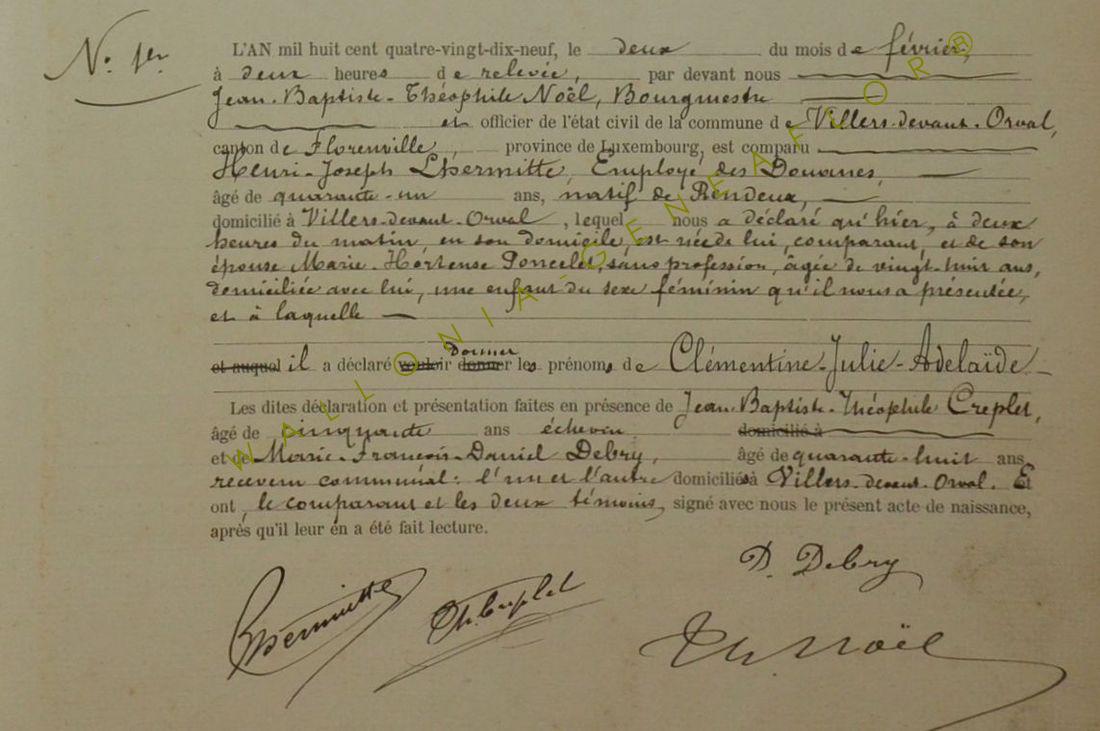 N.º 1er
L'AN mil huit cent quatre-vingt-dix-neuf, le deux du mois de février,
à deux heures de relevée, par devant nous
Jean-Baptiste-Théophile Noël, Bourgmestre
et officier de l'état civil de la commune de Villers-devant-Orval,
canton de Florenville, province de Luxembourg, est comparu
Henri-Joseph Lhermitte, Employé des Douanes,
âgé de quarante-un ans, natif de Rendeux,
domicilié à Villers-devant-Orval, lequel nous a déclaré qu'hier, à deux
heures du matin, en son domicile, est née de lui, comparant, et de son
épouse Marie-Hortense Poncelet, sans profession, âgée de vingt-huit ans,
domiciliée avec lui, une enfant du sexe féminin qu'il nous a présentée,
et à laquelle
et auquel il a déclaré vouloir donner donner les prénoms de Clémentine-Julie-Adelaïde
Les dites déclaration et présentation faites en présence de Jean-Baptiste-Théophile Creplet,
âgé de cinquante ans échevin domicilié à
et de Marie-François-Daniel Debry, âgé de quarante-huit ans
receveur communal: l'un et l'autre domiciliés à Villers-devant-Orval. Et
ont, le comparant et les deux témoins, signé avec nous le présent acte de naissance,
après qu'il leur en a été fait lecture.
D. Debry
Lhermitte Th. Creplet
Th. Noël
WALLONIA-GENEAFLOR®